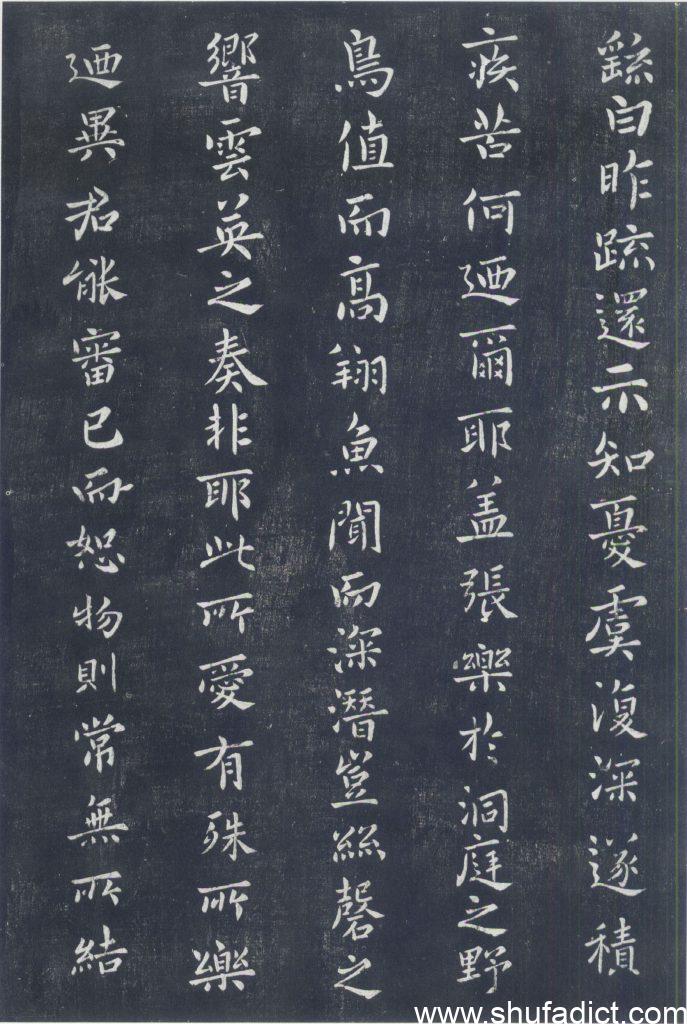 繇白昨疏還示知憂虞復深遂積
疾苦何迺爾耶盖張樂於洞庭之野
鳥值而高翔魚聞而深潛豈絲磬之
響雲英之奏非耶此所愛有殊所樂
迺異君能審己而恕物則常無所結
www.shufadict.com